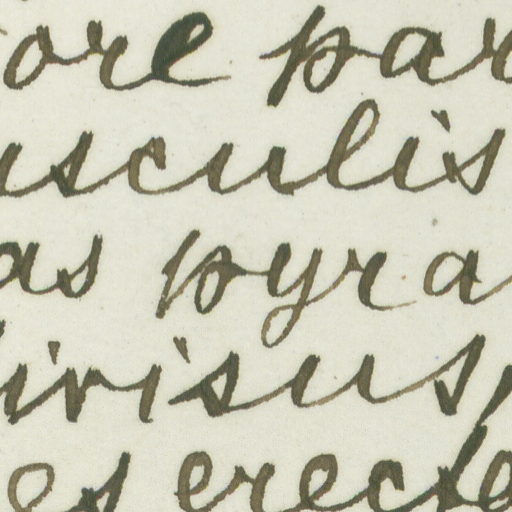 ore par
usculis
as pyra
ivisus,
es erecte